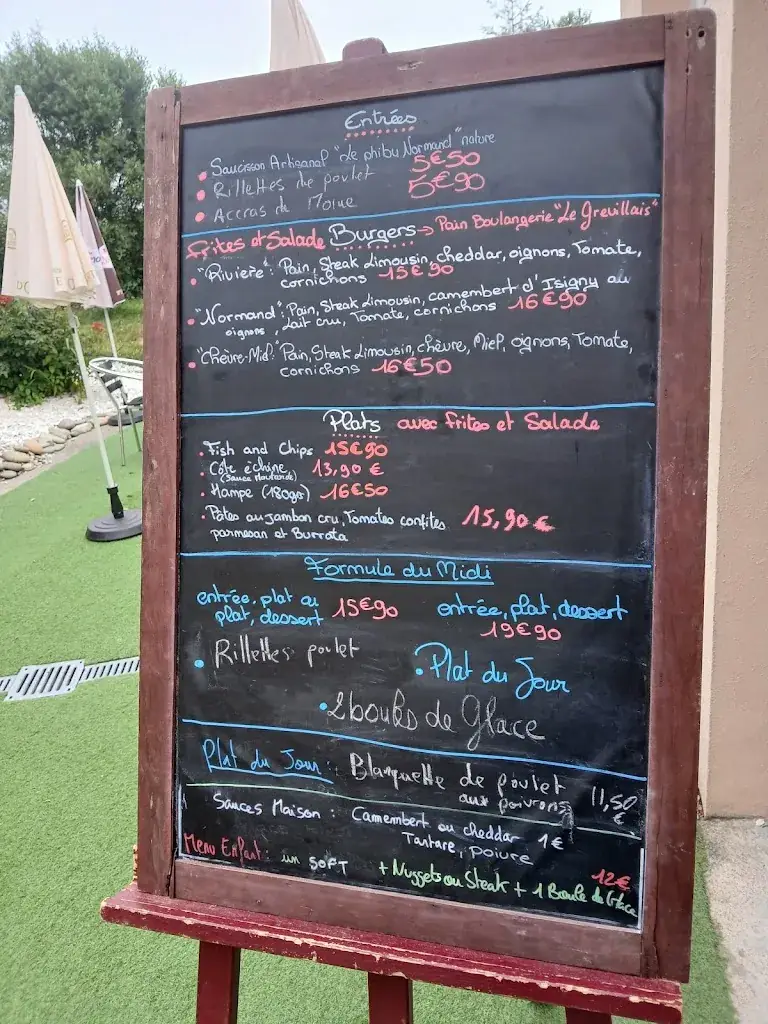 Entrées
• Saucisson Artisanal "de phibu Normand" nature
5€50
• Rillettes de poulet 5€90
• Accras de Morue
Frites et Salade Burgers → Pain Boulangerie "Le Grevillais"
• "Rivière": Pain, Steak Limousin, cheddar, oignons, Tomate,
cornichons 15€90
• "Normand": Pain, Steak Limousin, camembert d'Isigny au
oignons, lait cru, Tomate, cornichons 16€90
• "Chèvre-Miel": Pain, Steak Limousin, chèvre, Miel, oignons, Tomate,
cornichons 16€50
Plats avec frites et Salade
• Fish and Chips 15€90
• Côte échine 13,90 €
(Sauce Moutarde)
• Hampe (180gr) 16€50
• Pates au jambon cru, Tomates confites 15,90 €
parmesan et Burrata
Formule du Midi
entrée, plat ou
plat, dessert 15€90
entrée, plat, dessert
19€90
• Rillettes poulet
• Plat du Jour
• 2 boules de Glace
Plat du Jour : Blanquette de poulet
aux poivrons 11,50
€
Sauces Maison : Camembert ou cheddar 1€
Tartare, poivre
Menu Enfant : un SOFT + Nuggets ou Steak + 1 Boule de Glace
12€